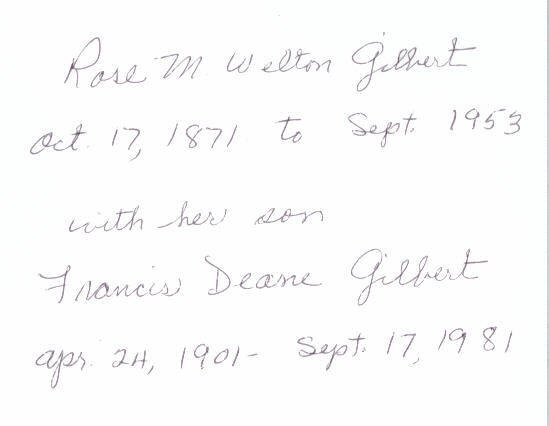 Rose M Welton Gilbert
Oct. 17, 1871 to Sept. 1953
with her son
Francis Deane Gilbert
apr. 24, 1901- Sept. 17, 1981